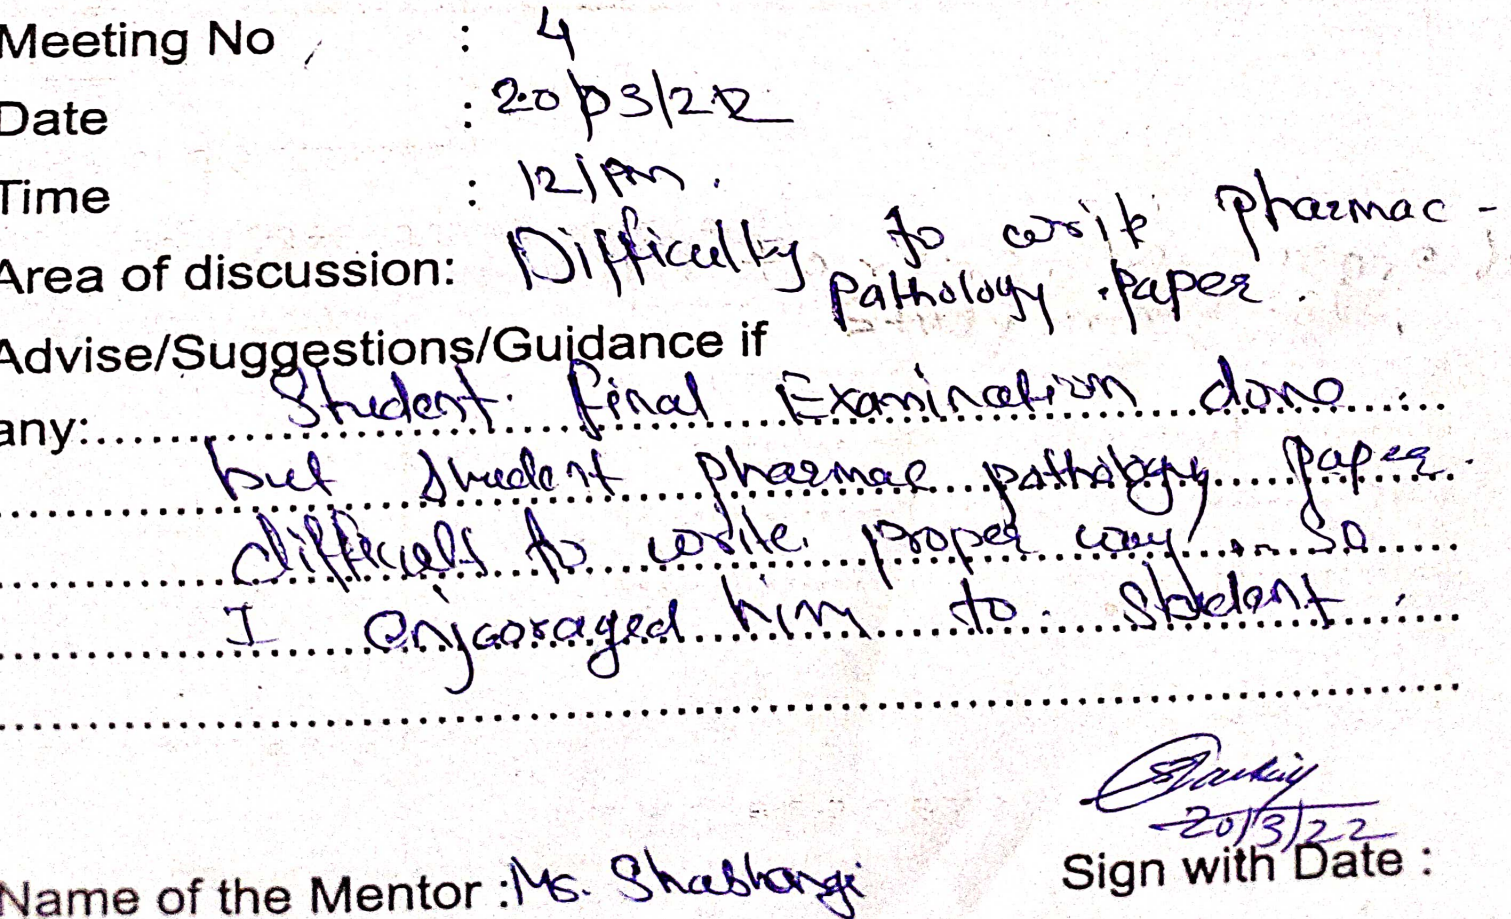 Meeting No : 4
Date : 20/03/22
Time : 12 pm.
Area of discussion: Difficulty to write pharmac -
pathology paper.
Advise/Suggestions/Guidance if
any: Student final Examination done.
but student pharmac pathology paper.
difficult to write proper way. So
I enjcoraged him to student.
20/3/22
Name of the Mentor : Ms. Shashangi
Sign with Date :